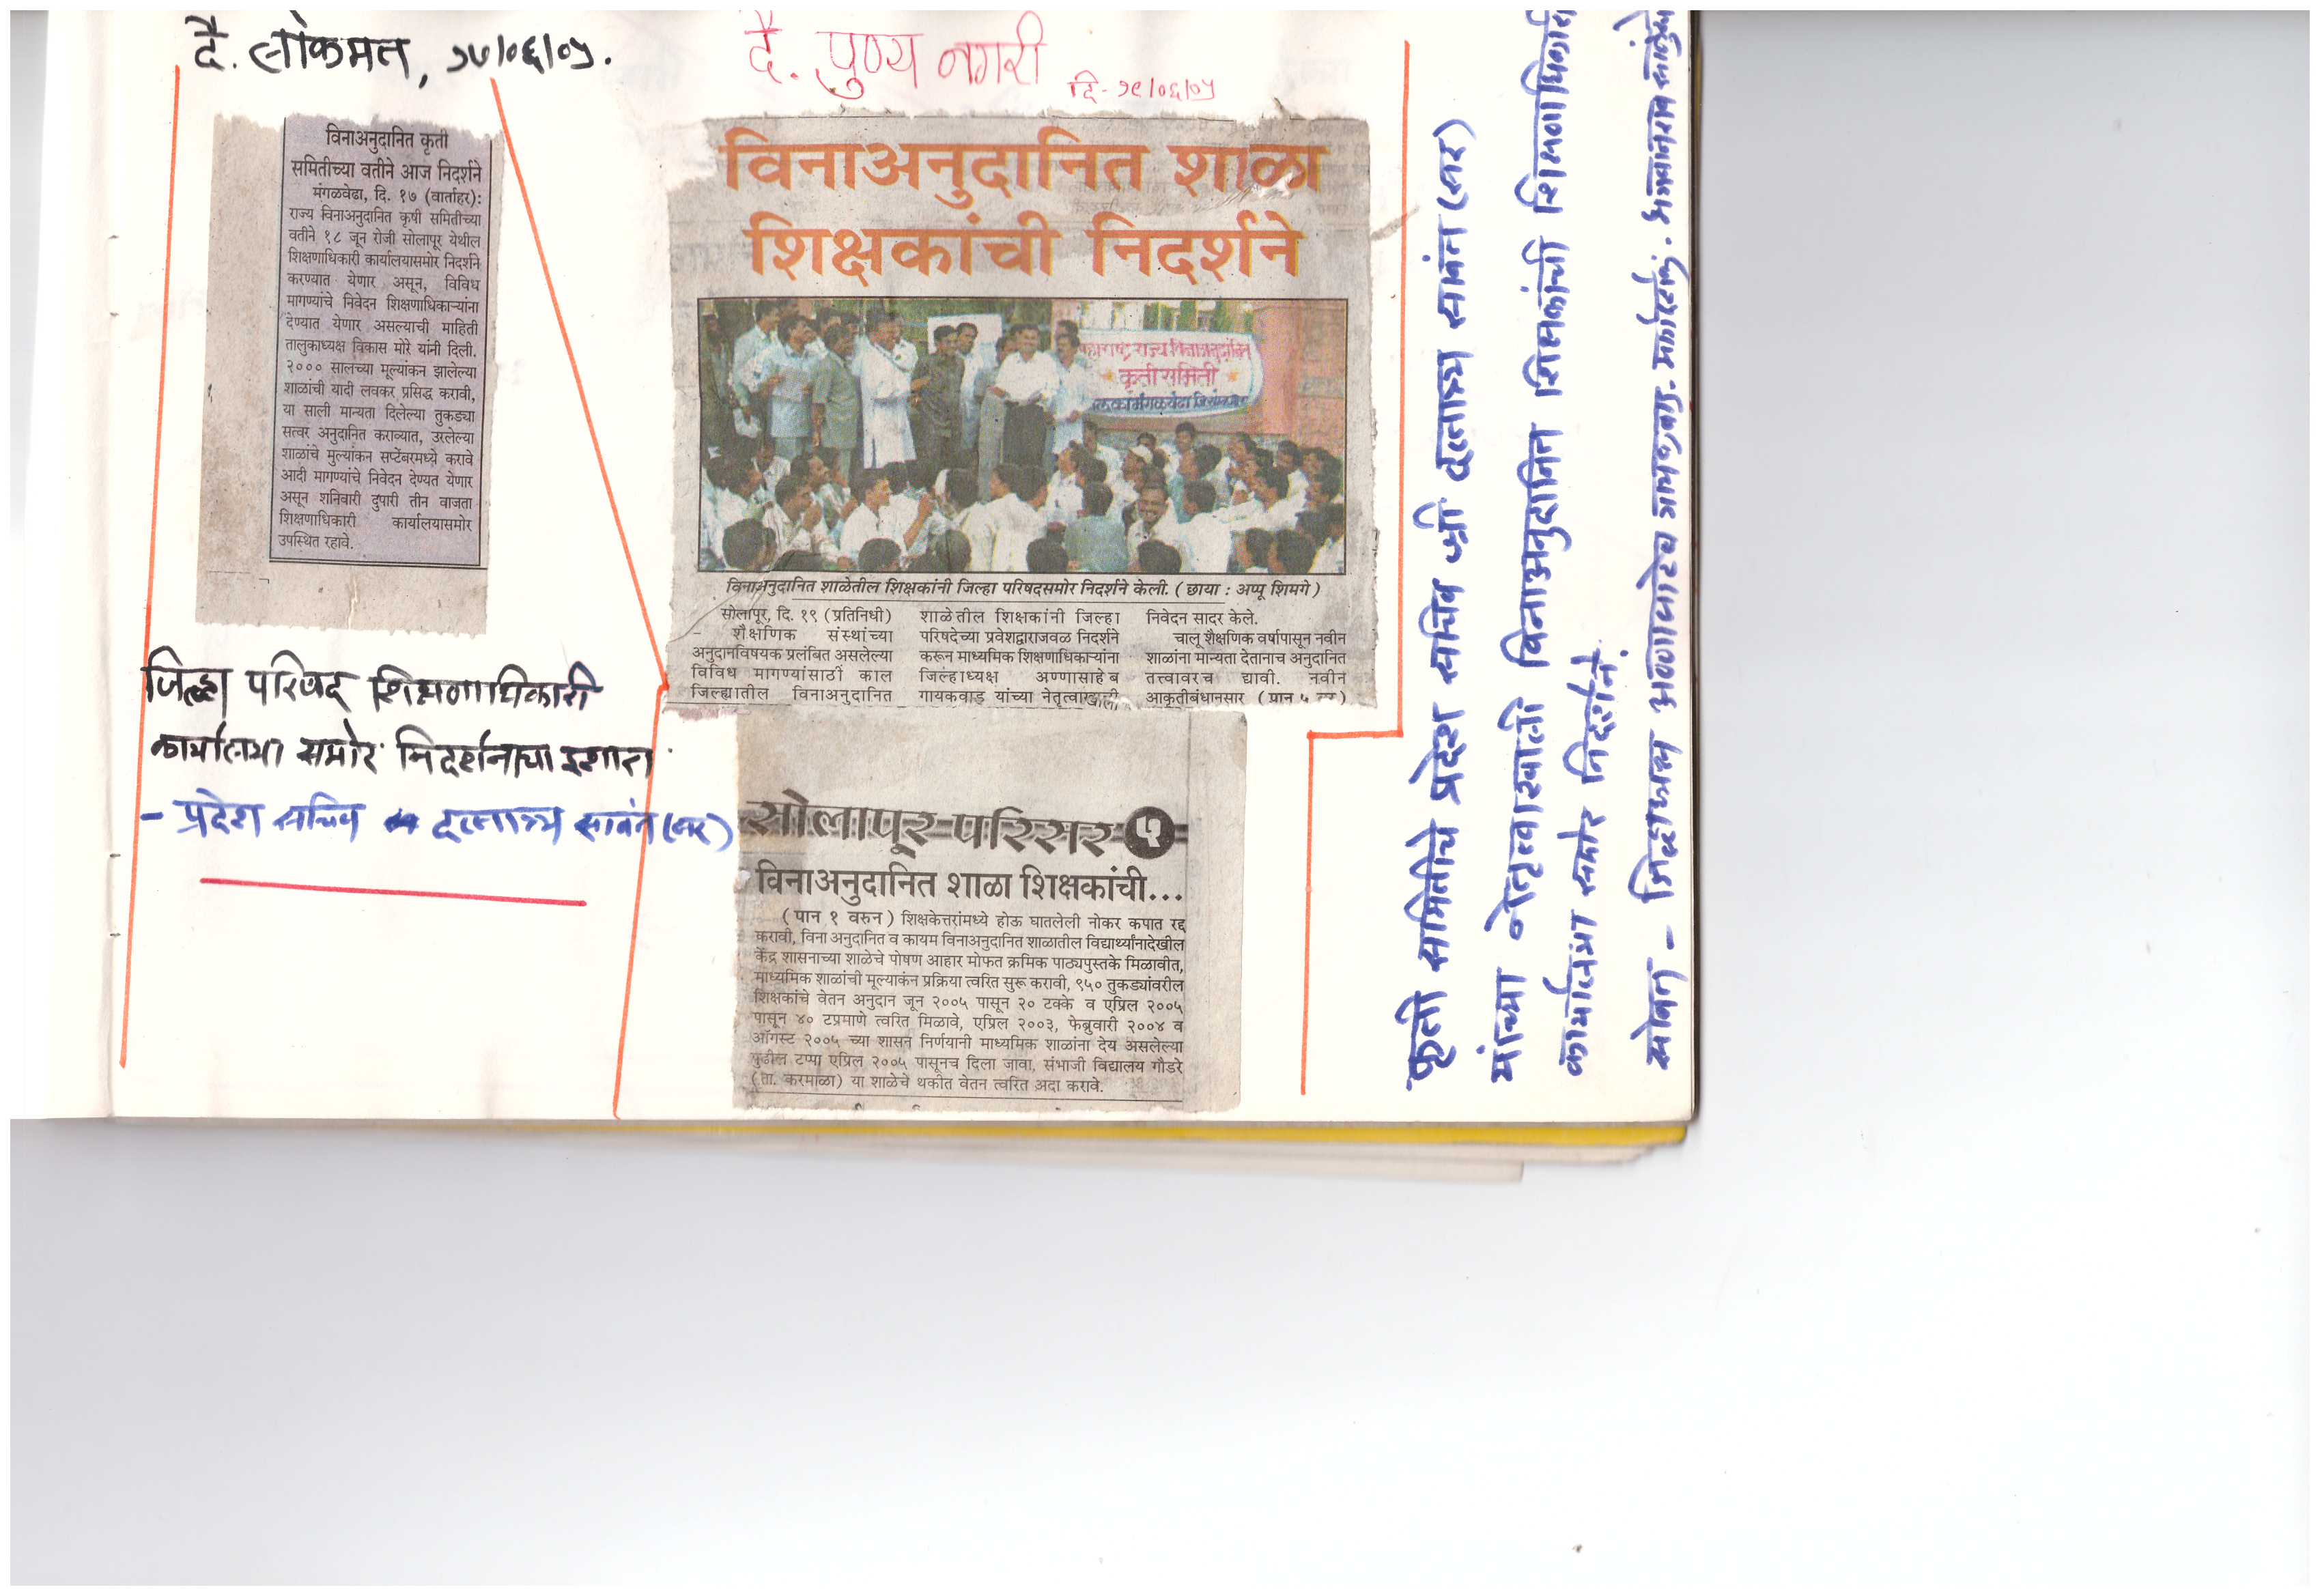 दै. लोकमत, १७/०६/०५.
विनाअनुदानित कृती
समितीच्या वतीने आज निदर्शने
मंगळवेढा, दि. १७ (वार्ताहर):
राज्य विनाअनुदानित कृषी समितीच्या
वतीने १८ जून रोजी सोलापूर येथील
शिक्षणाधिकारी कार्यालयासमोर निदर्शने
करण्यात येणार असून, विविध
मागण्यांचे निवेदन शिक्षणाधिकाऱ्यांना
देण्यात येणार असल्याची माहिती
तालुकाध्यक्ष विकास मोरे यांनी दिली.
२००० सालच्या मूल्यांकन झालेल्या
शाळांची यादी लवकर प्रसिद्ध करावी,
या साली मान्यता दिलेल्या तुकड्या
सत्वर अनुदानित कराव्यात, उरलेल्या
शाळांचे मुल्यांकन सप्टेंबरमध्ये करावे
आदी मागण्यांचे निवेदन देण्यत येणार
असून शनिवारी दुपारी तीन वाजता
शिक्षणाधिकारी कार्यालयासमोर
उपस्थित रहावे.
जिल्हा परिषद शिक्षणाधिकारी
कार्यालया समोर निदर्शनाचा इशारा
- प्रदेश सचिव दत्तात्र्य सावंत (सर)
दै. पुण्य नगरी
दि- १९/०६/०५
विनाअनुदानित शाळा
शिक्षकांची निदर्शने
महाराष्ट्र राज्य विनाअनुदानित
कृती समिती
विनाअनुदानित शाळेतील शिक्षकांनी जिल्हा परिषदसमोर निदर्शने केली. ( छाया : अप्पू शिमगे )
सोलापूर, दि. १९ (प्रतिनिधी)
- शैक्षणिक संस्थांच्या
अनुदानविषयक प्रलंबित असलेल्या
विविध मागण्यांसाठी काल
जिल्ह्यातील विनाअनुदानित
शाळेतील शिक्षकांनी जिल्हा
परिषदेच्या प्रवेशद्वाराजवळ निदर्शने
करून माध्यमिक शिक्षणाधिकाऱ्यांना
जिल्हाध्यक्ष अण्णासाहेब
गायकवाड यांच्या नेतृत्वाखाली
निवेदन सादर केले.
चालू शैक्षणिक वर्षापासून नवीन
शाळांना मान्यता देतानाच अनुदानित
तत्त्वावरच द्यावी. नवीन
आकृतीबंधानसार ( पान ५ वर )
सोलापूर परिसर ५
विनाअनुदानित शाळा शिक्षकांची...
( पान १ वरुन ) शिक्षकेत्तरांमध्ये होऊ घातलेली नोकर कपात रद्द
करावी, विना अनुदानित व कायम विनाअनुदानित शाळातील विद्यार्थ्यांनादेखील
केंद्र शासनाच्या शाळेचे पोषण आहार मोफत क्रमिक पाठ्यपुस्तके मिळावीत,
माध्यमिक शाळांची मूल्याकंन प्रक्रिया त्वरित सुरू करावी, ९५० तुकड्यांवरील
शिक्षकांचे वेतन अनुदान जून २००५ पासून २० टक्के व एप्रिल २००५
पासून ४० टप्रमाणे त्वरित मिळावे, एप्रिल २००३, फेब्रुवारी २००४ व
ऑगस्ट २००५ च्या शासन निर्णयानी माध्यमिक शाळांना देय असलेल्या
पुढील टप्पा एप्रिल २००५ पासूनच दिला जावा, संभाजी विद्यालय गौडरे
(ता. करमाळा) या शाळेचे थकीत वेतन त्वरित अदा करावे.
कृती समितीचे प्रदेश सचिव श्री दत्तात्र्य सावंत (सर)
यांच्या नेतृत्वाखाली विनाअनुदानित शिक्षकांची शिक्षणाधिकारी
कार्यालया समोर निदर्शने.
सोबत - जिल्हाध्यक्ष अण्णासाहेब गायकवाड. भगवानराव साळुंखे